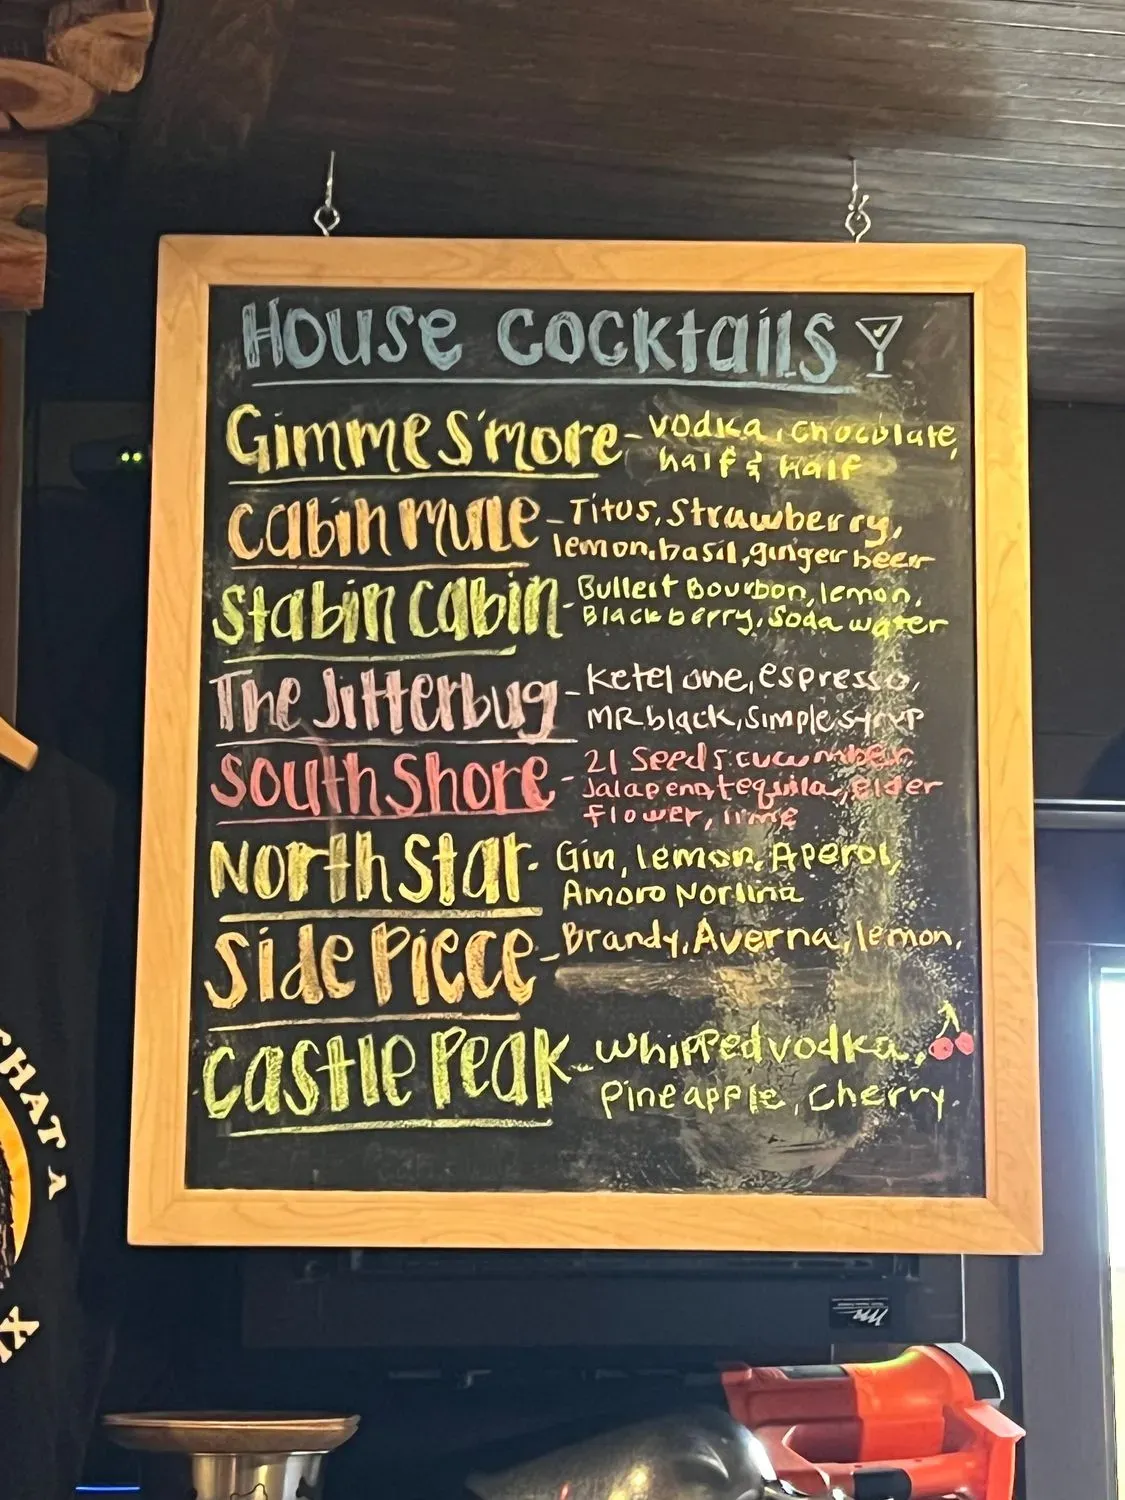 House Cocktails
Gimme S'more - Vodka, chocolate,
half & half
Cabin Mule - Titos, Strawberry,
lemon, basil, ginger beer
Stabin Cabin - Bulleit Bourbon, lemon,
Blackberry, Soda water
The Jitterbug - Ketel one, espresso,
MR black, Simple syrup
South Shore - 21 Seeds cucumber
Jalapeno tequila, elder
flower, lime
North Star - Gin, lemon, Aperol,
Amoro Norlina
Side Piece - Brandy, Averna, lemon,
Castle Peak - Whipped vodka,
Pineapple, Cherry.
HAT A